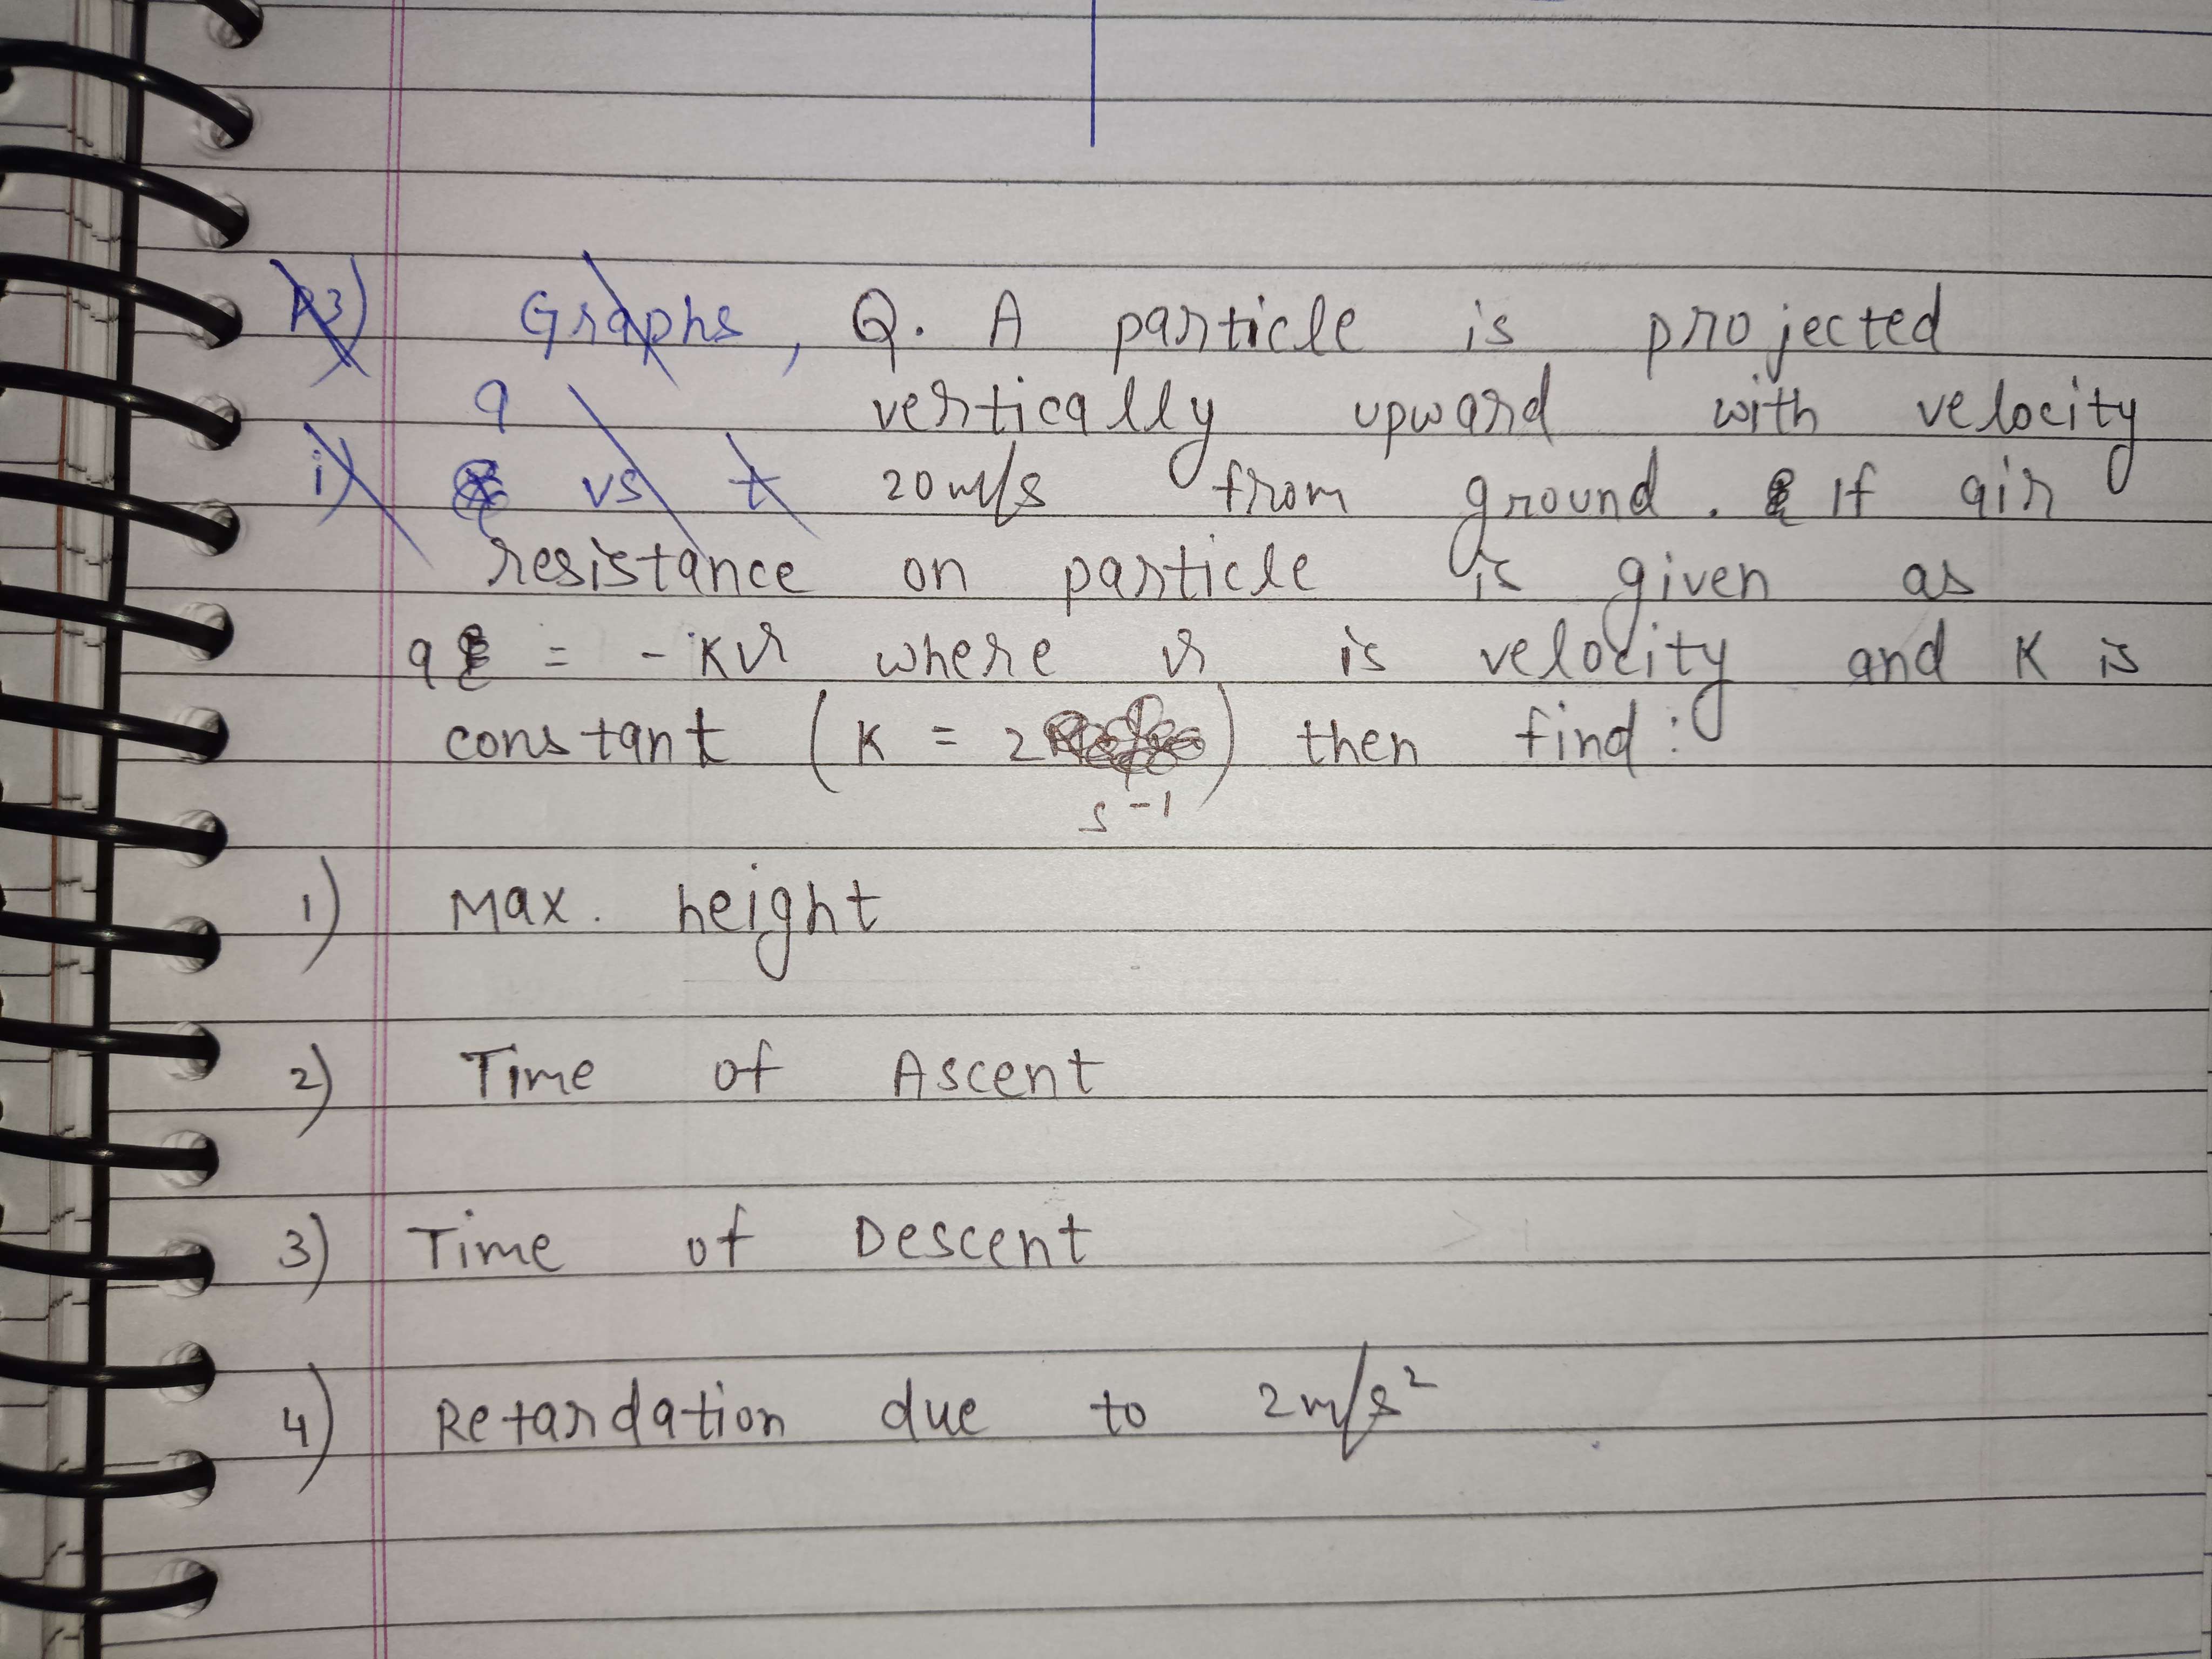 A3) Graphs, Q. A particle is projected
a vertically upward with velocity
i) vs t 20 m/s from ground. If air
resistance on particle is given as
a = -Kv where v is velocity and K is
constant (K = 2 ) then find:
s⁻¹
1) Max. height
2) Time of Ascent
3) Time of Descent
4) Retardation due to 2m/s²